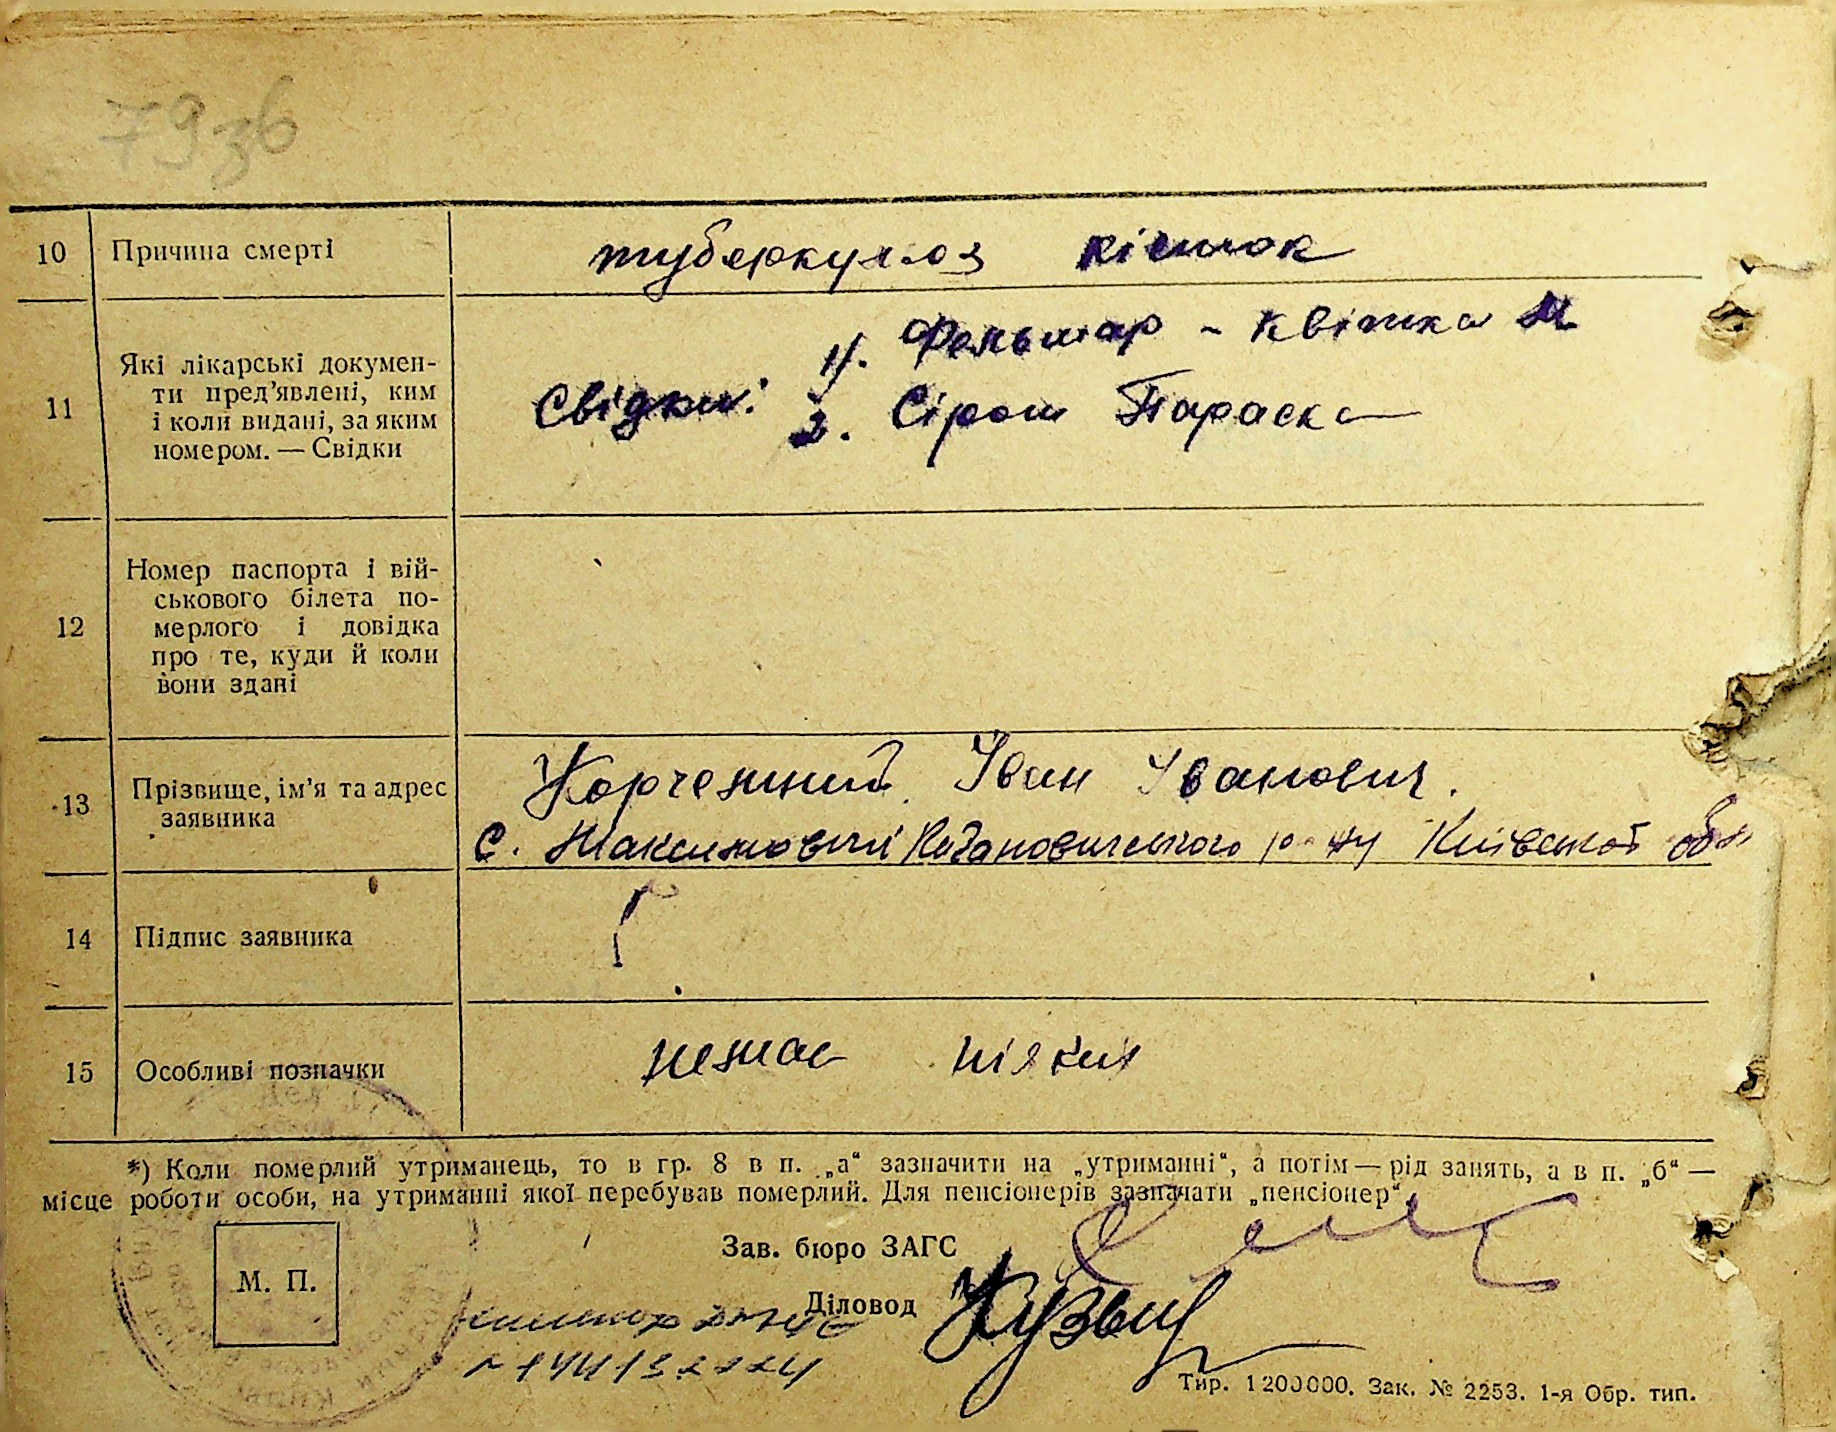 79зб
10 Причина смерті туберкульоз кішок
11 Які лікарські докумен-
ти пред'явлені, ким
і коли видані, за яким
номером. — Свідки
1. Фельшар - Квітка М
Свідки: 2. Сірош Параска
12 Номер паспорта і вій-
ськового білета по-
мерлого і довідка
про те, куди й коли
вони здані
13 Прізвище, ім'я та адрес
заявника
Корченний Іван Іванович.
с. Максимовичі Кагановичського р-ну Київської обл
14 Підпис заявника
15 Особливі позначки немає ніяких
*) Коли померлий утриманець, то в гр. 8 в п. „а“ зазначити на „утриманні“, а потім — рід занять, а в п. „б“ —
місце роботи особи, на утриманні якої перебував померлий. Для пенсіонерів зазначати „пенсіонер“.
Зав. бюро ЗАГС
М. П.
Діловод
Тир. 1200000. Зак. № 2253. 1-я Обр. тип.